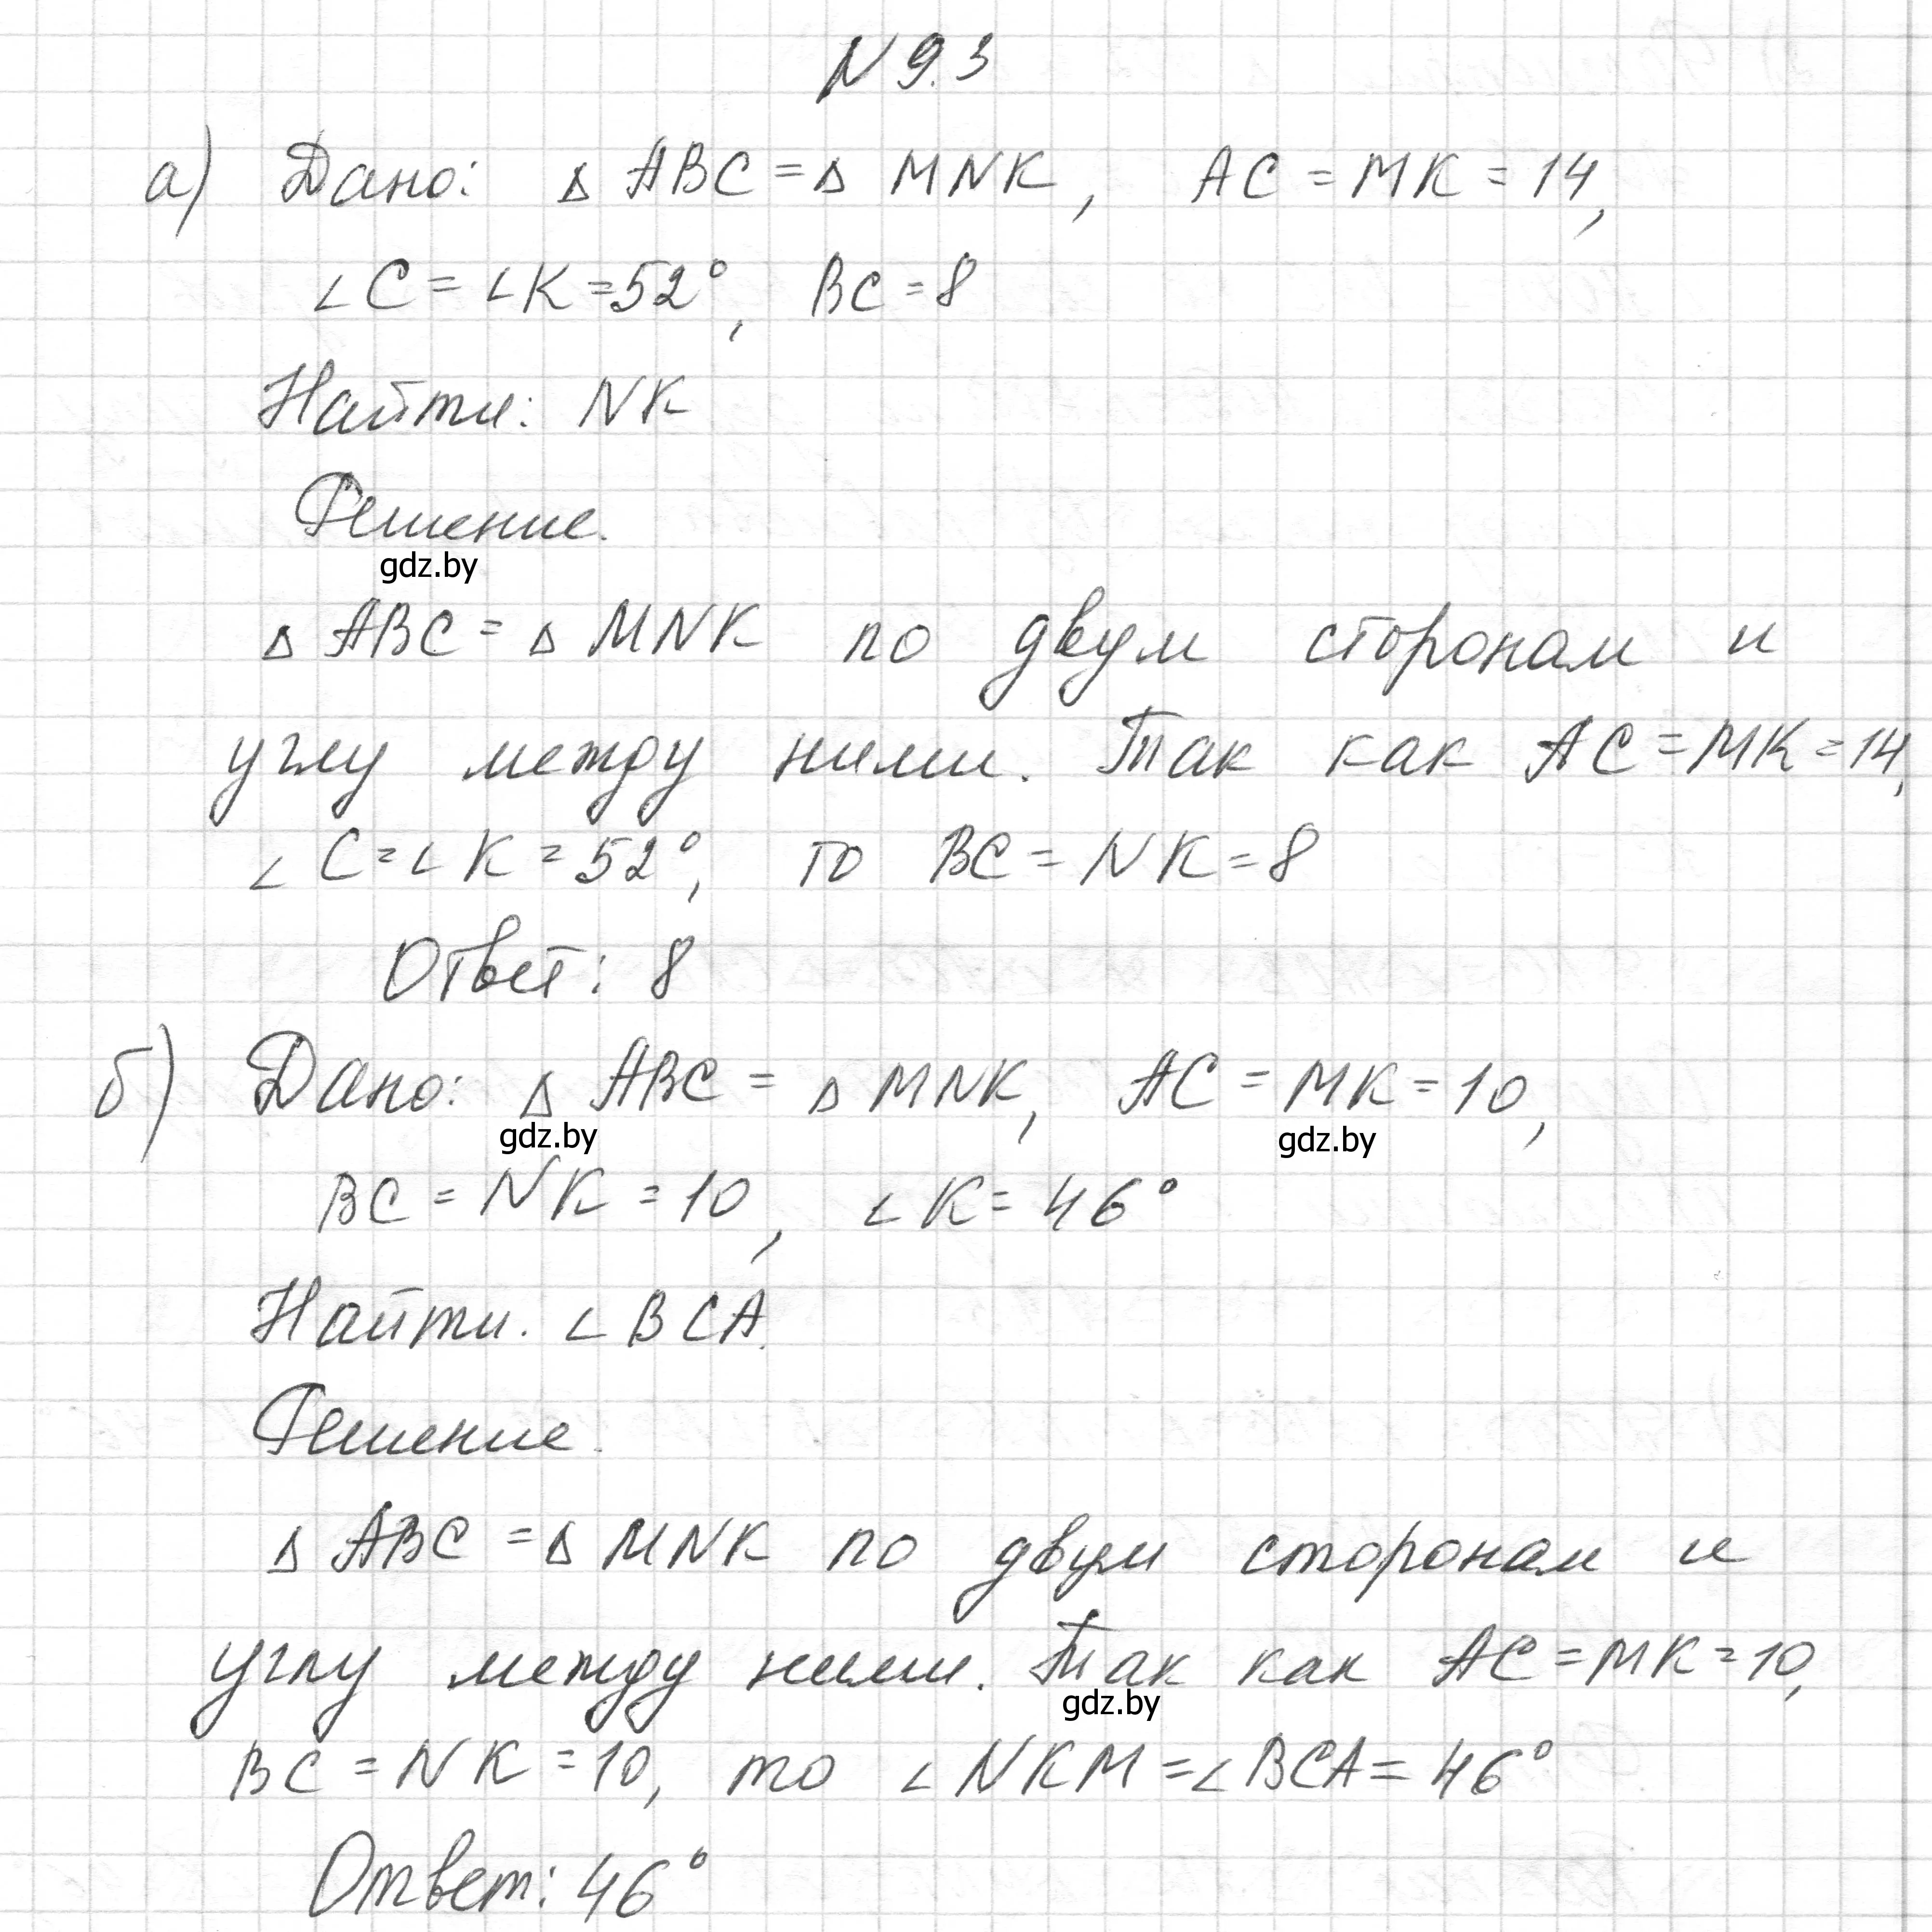 N 9.3
а) Дано: Δ ABC = Δ MNK, AC = MK = 14,
∠C = ∠K = 52°, BC = 8
Найти: NK
Решение.
gdz.by
Δ ABC = Δ MNK по двум сторонам и
углу между ними. Так как AC = MK = 14,
∠C = ∠K = 52°, то BC = NK = 8
Ответ: 8
б) Дано: Δ ABC = Δ MNK, AC = MK = 10,
gdz.by gdz.by
BC = NK = 10, ∠K = 46°
Найти. ∠BCA.
Решение.
Δ ABC = Δ MNK по двум сторонам и
углу между ними. Так как AC = MK = 10,
gdz.by
BC = NK = 10, то ∠NKM = ∠BCA = 46°
Ответ: 46°